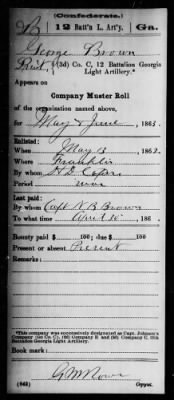 (Confederate.)
B 12 Batt'n L. Art'y. Ga.
George Brown
Pvt, (3d) Co. C, 12 Battalion Georgia
Light Artillery.*
Appears on
Company Muster Roll
of the organization named above,
for May & June, 1863.
Enlisted:
When May 13, 1862.
Where Franklin
By whom H. D. Capers
Period war
Last paid:
By whom Capt N B Brown
To what time April 30, 186
Bounty paid $ 100; due $ 100
Present or absent Present
Remarks:
*This company was successively designated as Capt. Johnson's
Company
Battalion Georgia Light Artillery.
Book mark:
(642) Copyist.